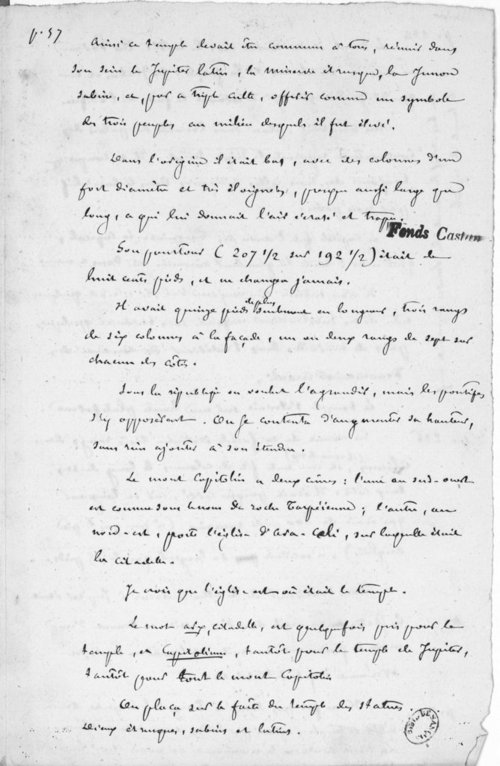 p. 57
Ainsi ce temple devait être commun à tous, réunir dans
son sein le Jupiter latin, la minerve étrusque, la Junon
sabine, et, par ce triple culte, offrir comme un symbole
des trois peuples au milieu desquels il fut élevé.
Dans l'origine il était bas, avec des colonnes d'un
fort diamètre et très éloignées, presque aussi large que
long, ce qui lui donnait l'air écrasé et trapu.
Fonds Castan
Son pourtour (207 1/2 sur 192 1/2) était de
huit cents pieds, et ne changea jamais.
Il avait quinze pieds de plus seulement en longueur, trois rangs
de six colonnes à la façade, un ou deux rangs de sept sur
chacun des côtés.
Sous la république on voulut l'agrandir, mais les pontifes
s'y opposèrent. On se contenta d'augmenter sa hauteur,
sans rien ajouter à son étendue.
Le mont Capitolin a deux cîmes : l'une au sud-ouest
est connue sous le nom de roche Tarpéienne ; l'autre, au
nord-est, porte l'église d'Ara-Celi, sur laquelle était
la citadelle.
Je crois que l'église est où était le temple.
Le mot arx, citadelle, est quelquefois pris pour le
temple, et Capitolium, tantôt pour le temple de Jupiter,
tantôt pour tout le mont Capitolin
On plaça sur le faîte du temple des statues
Dieux étrusques, sabins et latins.